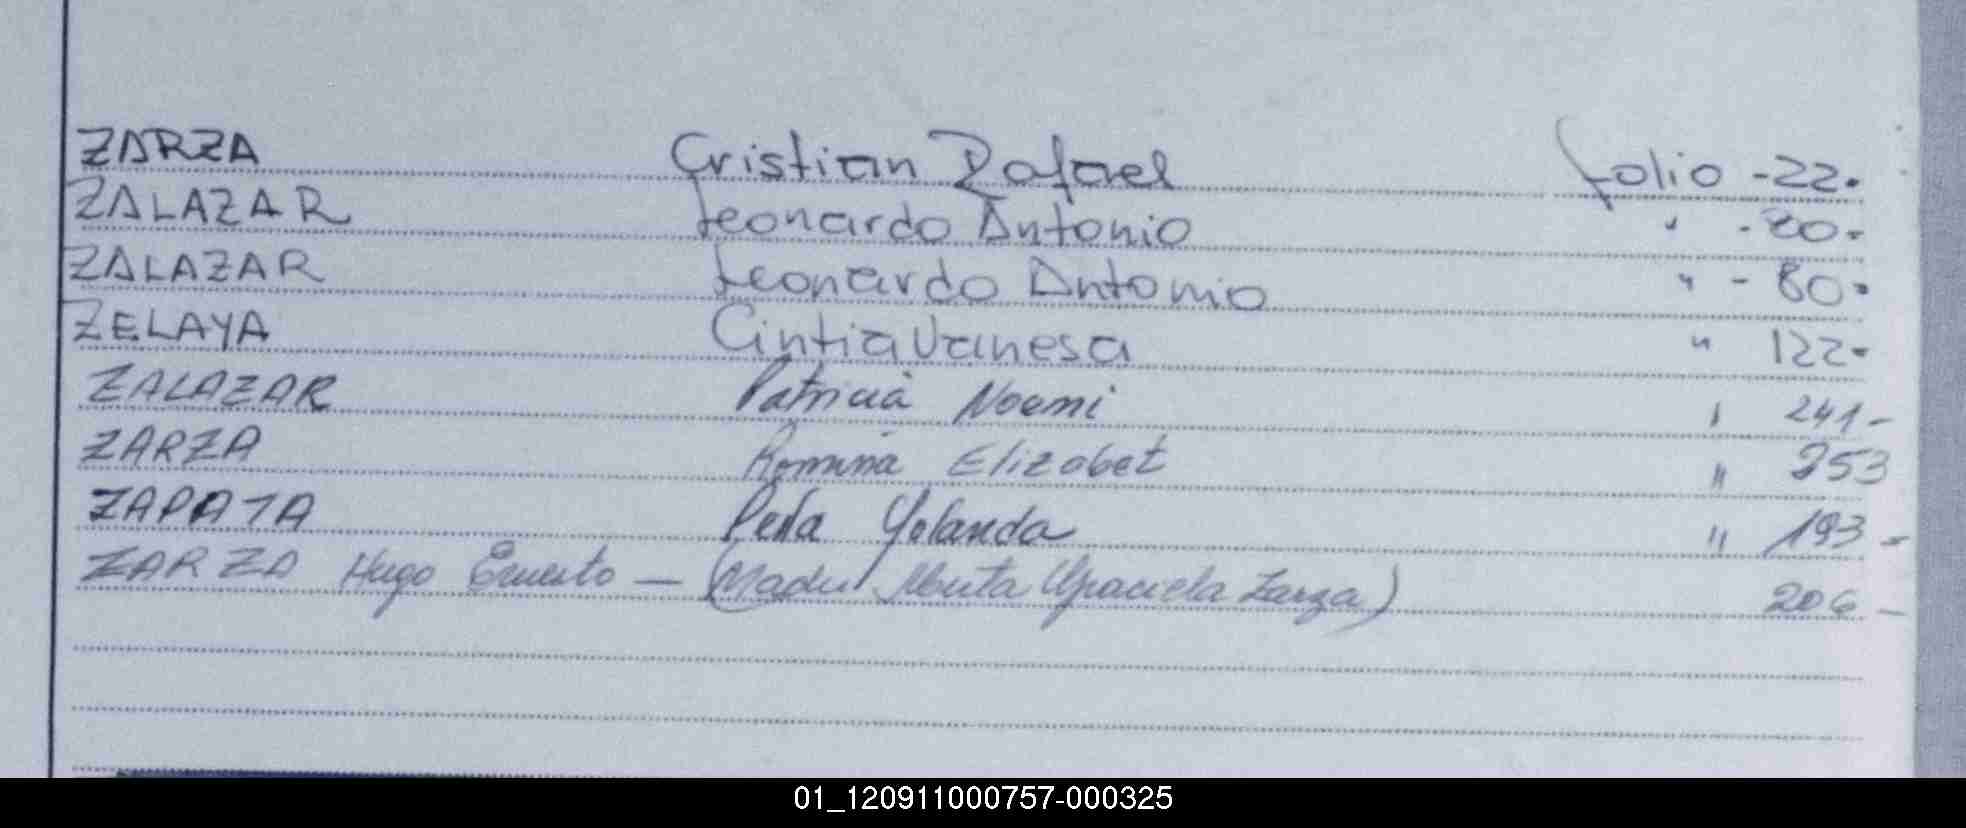 ZARZA Cristian Rafael folio -22.
ZALAZAR Leonardo Antonio " -80.
ZALAZAR Leonardo Antonio " - 80.
ZELAYA Cintia Vanesa " 122.
ZALAZAR Patricia Noemi " 241-
ZARZA Romina Elizabet " 253
ZAPATA Yolanda " 193-
ZARZA Hugo Ernesto — (Madre Graciela Zarza) 206-
01_120911000757-000325